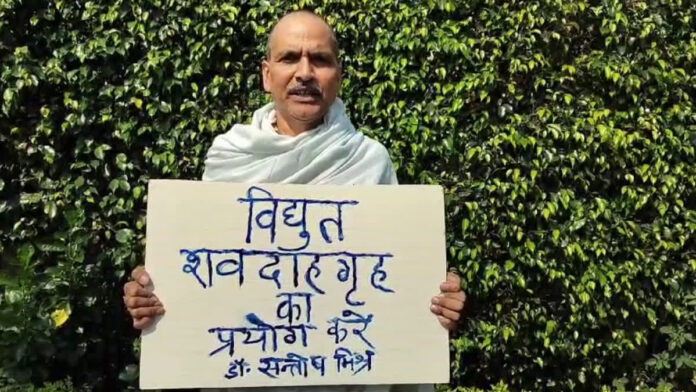 विद्युत
शवदाह गृह
का
प्रयोग करें
डॉ. सन्तोष मिश्र